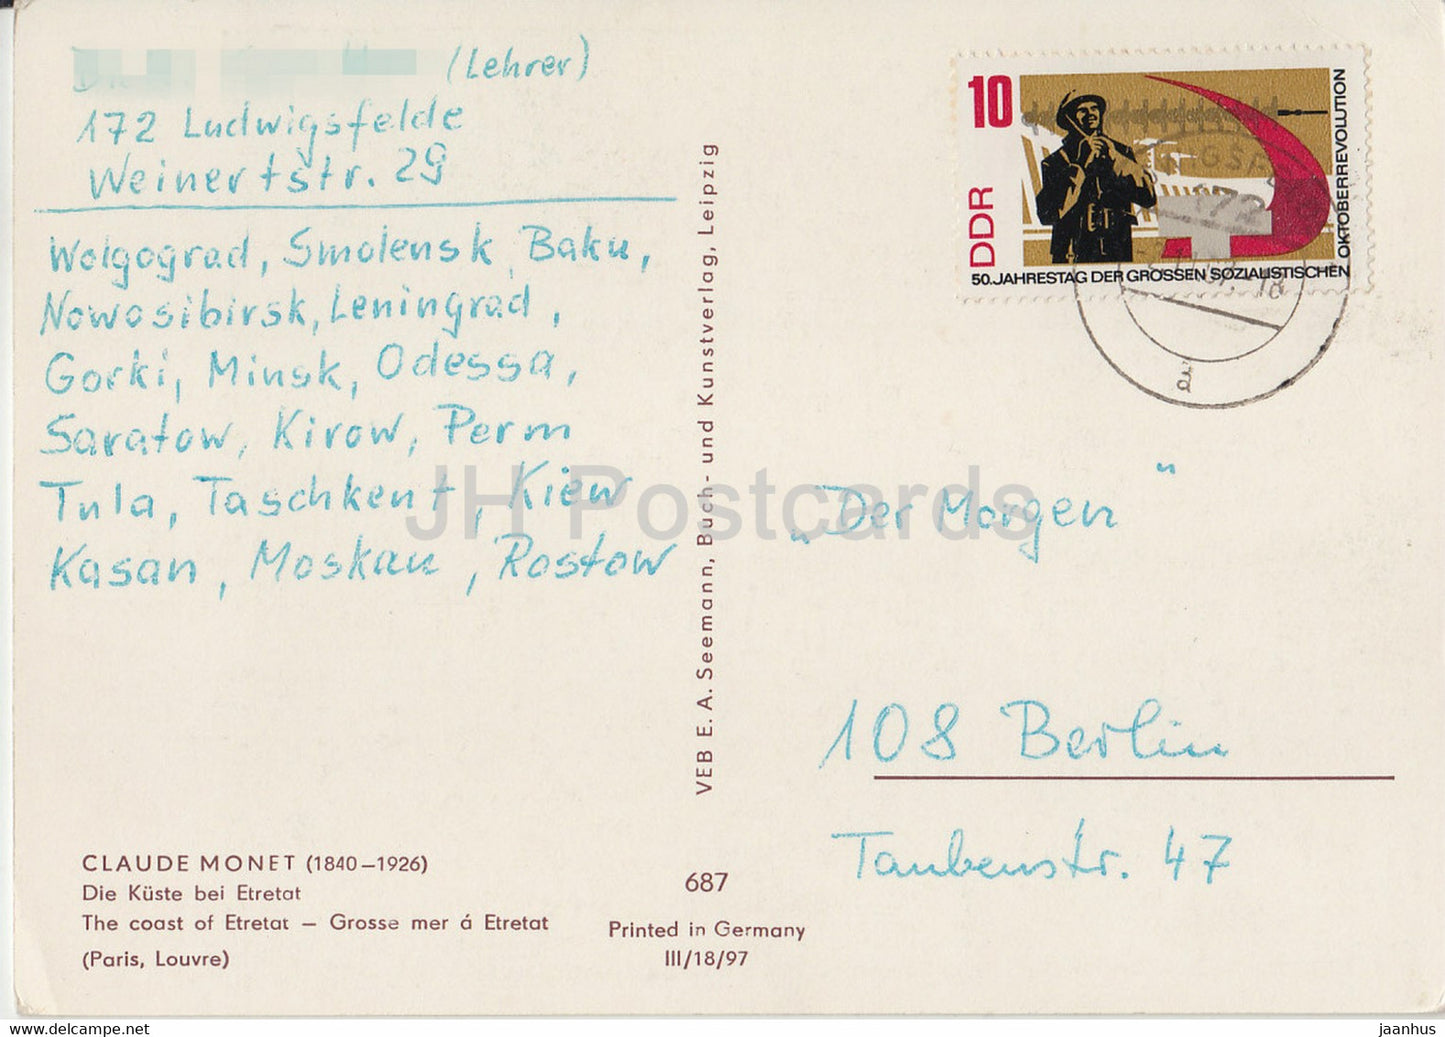 (Lehrer)
172 Ludwigsfelde
Weinertstr. 29
Wolgograd, Smolensk, Baku,
Nowosibirsk, Leningrad,
Gorki, Minsk, Odessa,
Saratow, Kirow, Perm
Tula, Taschkent, Kiew
Kasan, Moskau, Rostow
CLAUDE MONET (1840–1926)
Die Küste bei Etretat
The coast of Etretat – Grosse mer á Etretat
(Paris, Louvre)
VEB E. A. Seemann, Buch- und Kunstverlag, Leipzig
687
Printed in Germany
III/18/97
10
DDR
50. JAHRESTAG DER GROSSEN SOZIALISTISCHEN
OKTOBERREVOLUTION
172
„Der Morgen“
108 Berlin
Taubenstr. 47
JH Postcards
jaanhus